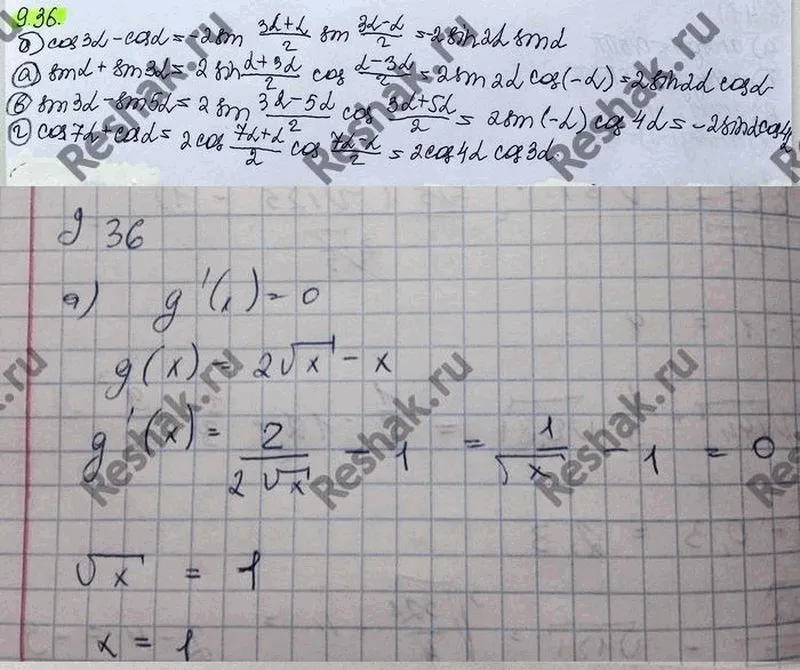 9.36.
б) cos3α - cosα = -2sin (3α+α)/2 sin (3α-α)/2 = -2sin2α sinα
а) sinα + sin3α = 2sin (α+3α)/2 cos (α-3α)/2 = 2sin2α cos(-α) = 2sin2α cosα
в) sin3α - sin5α = 2sin (3α-5α)/2 cos (3α+5α)/2 = 2sin(-α) cos4α = -2sinα cos4α
г) cos7α + cosα = 2cos (7α+α)/2 cos (7α-α)/2 = 2cos4α cos3α.
9 36
а) g'(x) = 0
g(x) = 2√x - x
g'(x) = 2/(2√x) - 1 = 1/√x - 1 = 0
√x = 1
x = 1
Reshak.ru
Reshak.ru
Reshak.ru
Reshak.ru
Reshak.ru
Reshak.ru
Reshak.ru
Reshak.ru